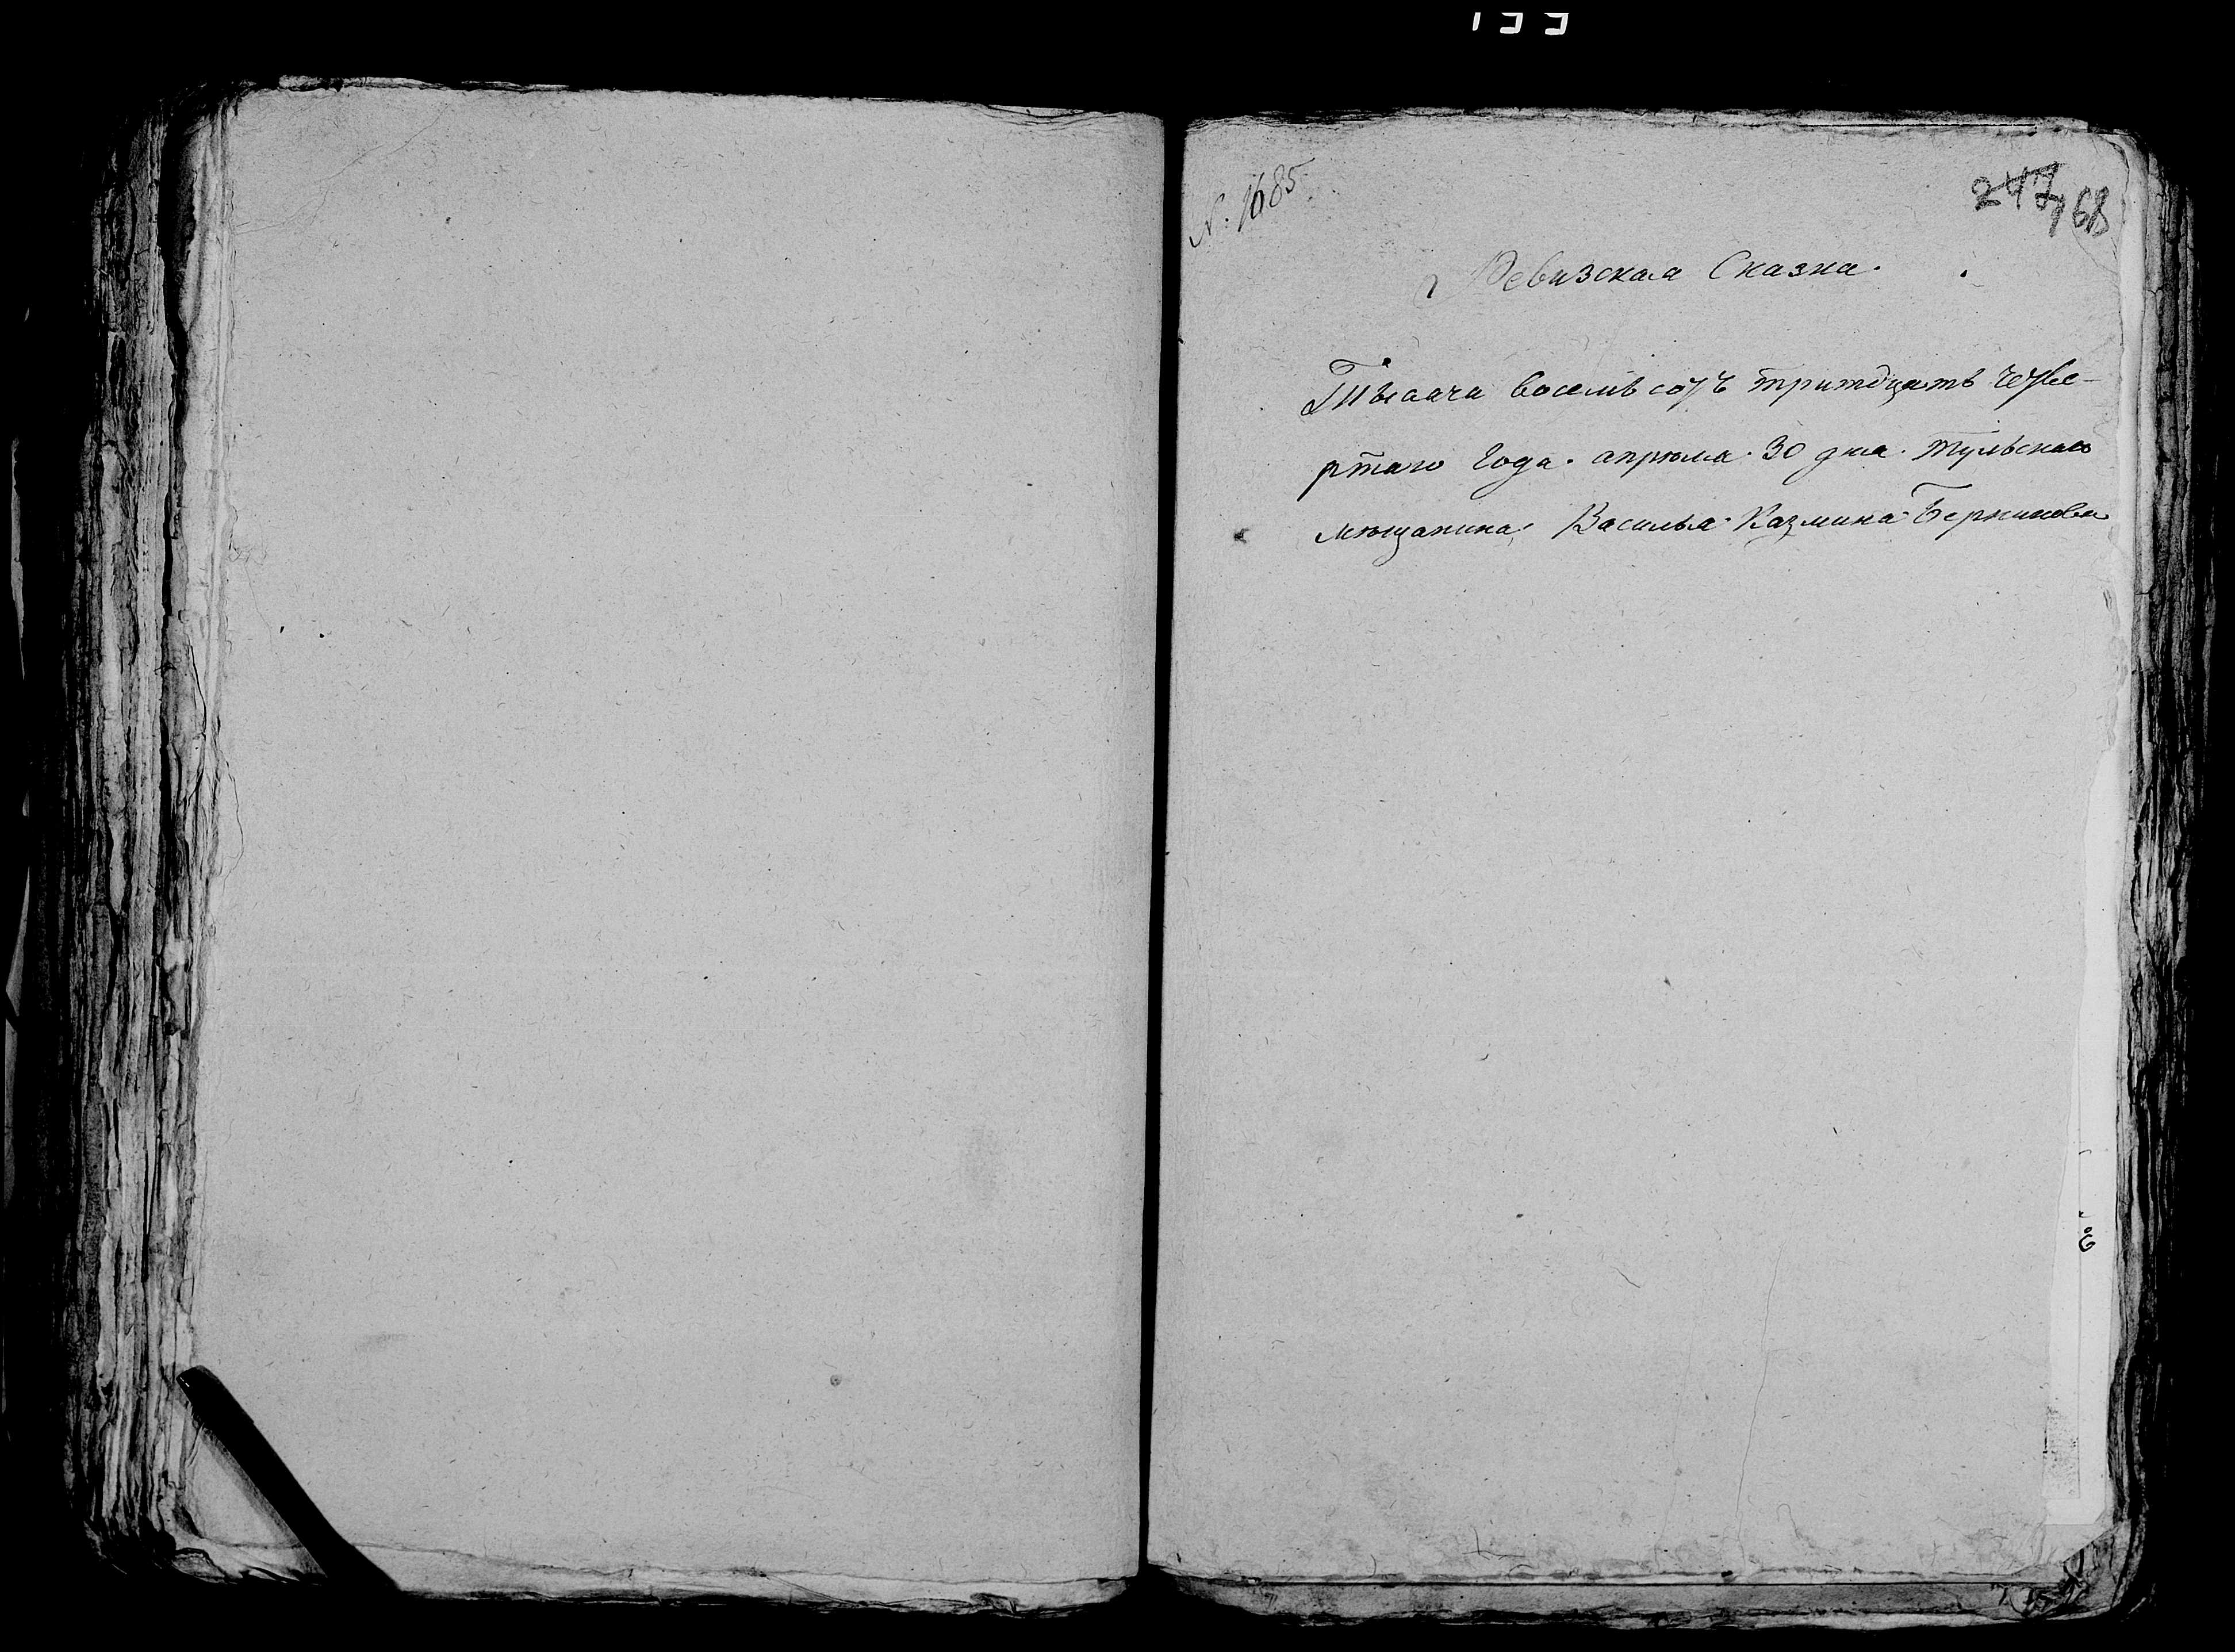 N: 1685
247 168
Ревизская Сказка.
Тысяча восемь сотъ тритдцать четве-
ртаго года. апреля. 30 дня. тульскаго
мѣщанина. Василья Казмина Берникова